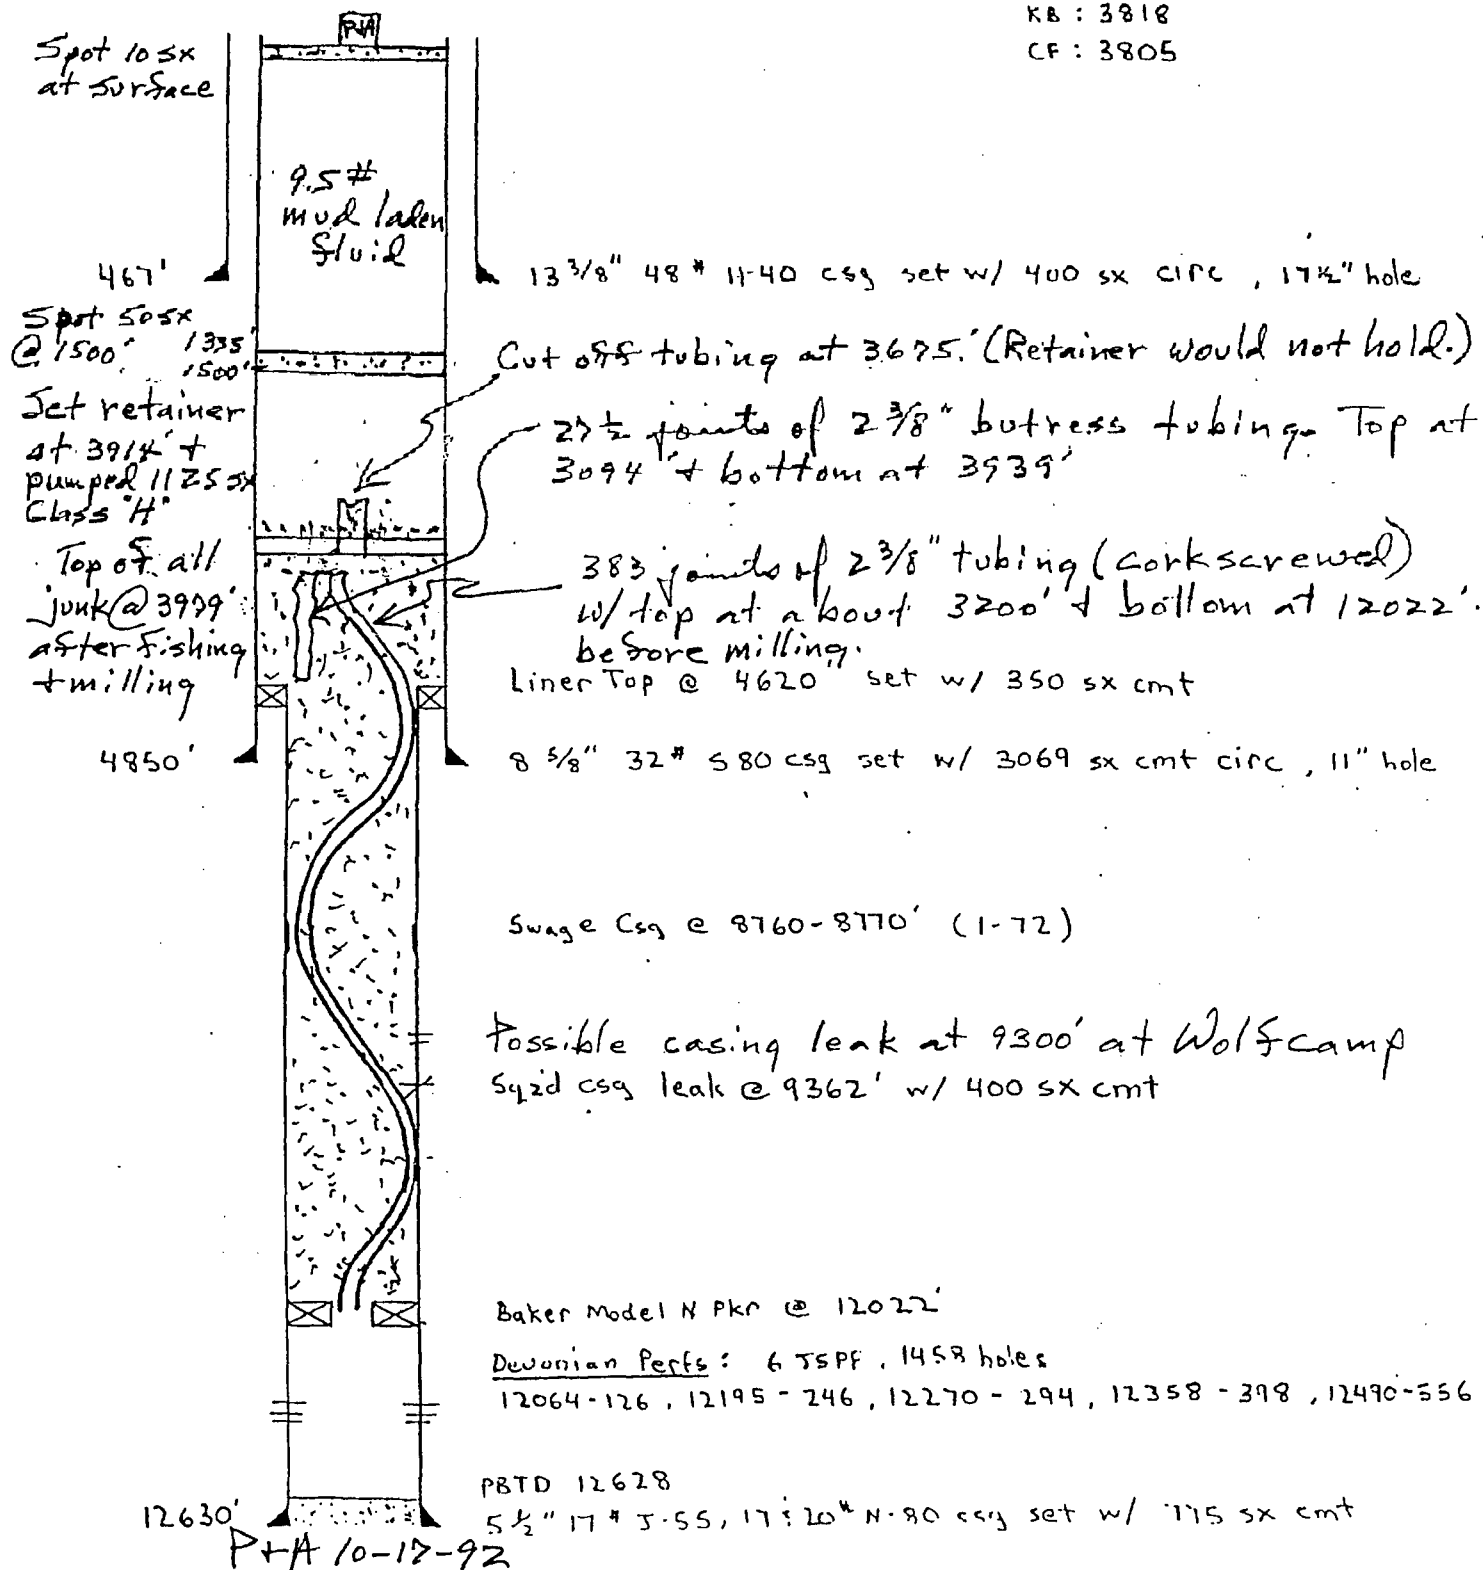 KB : 3818
CF : 3805
P+A
Spot 10 sx
at surface
9.5 #
mud laden
fluid
467'
13 3/8" 48 # H-40 csg set w/ 400 sx circ , 17 1/2" hole
Spot 50 sx
@ 1500'
1335'
1500'
Cut off tubing at 3675.' (Retainer would not hold.)
Set retainer
at 3914' +
pumped 1125 sx
Class "H"
27 1/2 joints of 2 3/8" butress tubing. Top at
3094' + bottom at 3939'
Top of all
junk @ 3979'
after fishing
+ milling
383 joints of 2 3/8" tubing (corkscrewed)
w/ top at about 3200' + bottom at 12022'.
before milling.
Liner Top @ 4620' set w/ 350 sx cmt
4850'
8 5/8" 32# S80 csg set w/ 3069 sx cmt circ , 11" hole
Swage Csg @ 8760-8770' (1-72)
Possible casing leak at 9300' at Wolfcamp
Sqzd csg leak @ 9362' w/ 400 sx cmt
Baker Model N Pkr @ 12022'
Devonian Perfs : 6 JSPF , 1458 holes
12064-126 , 12195-246 , 12270-294 , 12358-398 , 12490-556
PBTD 12628
12630'
5 1/2" 17 # J-55, 17 & 20# N-80 csg set w/ 775 sx cmt
P+A 10-17-92